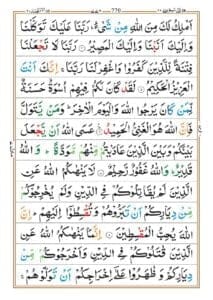 أَمْلِكُ لَكَ مِنَ اللهِ مِنْ شَيْءٍ ۖ رَبَّنَا عَلَيْكَ تَوَكَّلْنَا
وَإِلَيْكَ أَنَبْنَا وَإِلَيْكَ الْمَصِيْرُ ۝ رَبَّنَا لَا تَجْعَلْنَا
فِتْنَةً لِّلَّذِيْنَ كَفَرُوْا وَاغْفِرْ لَنَا رَبَّنَا ۚ إِنَّكَ أَنْتَ
الْعَزِيْزُ الْحَكِيْمُ ۝ لَقَدْ كَانَ لَكُمْ فِيْهِمْ أُسْوَةٌ حَسَنَةٌ
لِّمَنْ كَانَ يَرْجُوا اللهَ وَالْيَوْمَ الْاٰخِرَ ۚ وَمَنْ يَّتَوَلَّ
فَإِنَّ اللهَ هُوَ الْغَنِيُّ الْحَمِيْدُ ۝ عَسَى اللهُ أَنْ يَّجْعَلَ
بَيْنَكُمْ وَبَيْنَ الَّذِيْنَ عَادَيْتُمْ مِّنْهُمْ مَّوَدَّةً ۚ وَاللهُ
قَدِيْرٌ ۚ وَاللهُ غَفُوْرٌ رَّحِيْمٌ ۝ لَا يَنْهٰىكُمُ اللهُ عَنِ
الَّذِيْنَ لَمْ يُقَاتِلُوْكُمْ فِي الدِّيْنِ وَلَمْ يُخْرِجُوْكُمْ
مِّنْ دِيَارِكُمْ أَنْ تَبَرُّوْهُمْ وَتُقْسِطُوْا إِلَيْهِمْ ۚ إِنَّ
اللهَ يُحِبُّ الْمُقْسِطِيْنَ ۝ إِنَّمَا يَنْهٰىكُمُ اللهُ عَنِ
الَّذِيْنَ قَاتَلُوْكُمْ فِي الدِّيْنِ وَأَخْرَجُوْكُمْ مِّنْ
دِيَارِكُمْ وَظَاهَرُوْا عَلٰى إِخْرَاجِكُمْ أَنْ تَوَلَّوْهُمْ ۚ